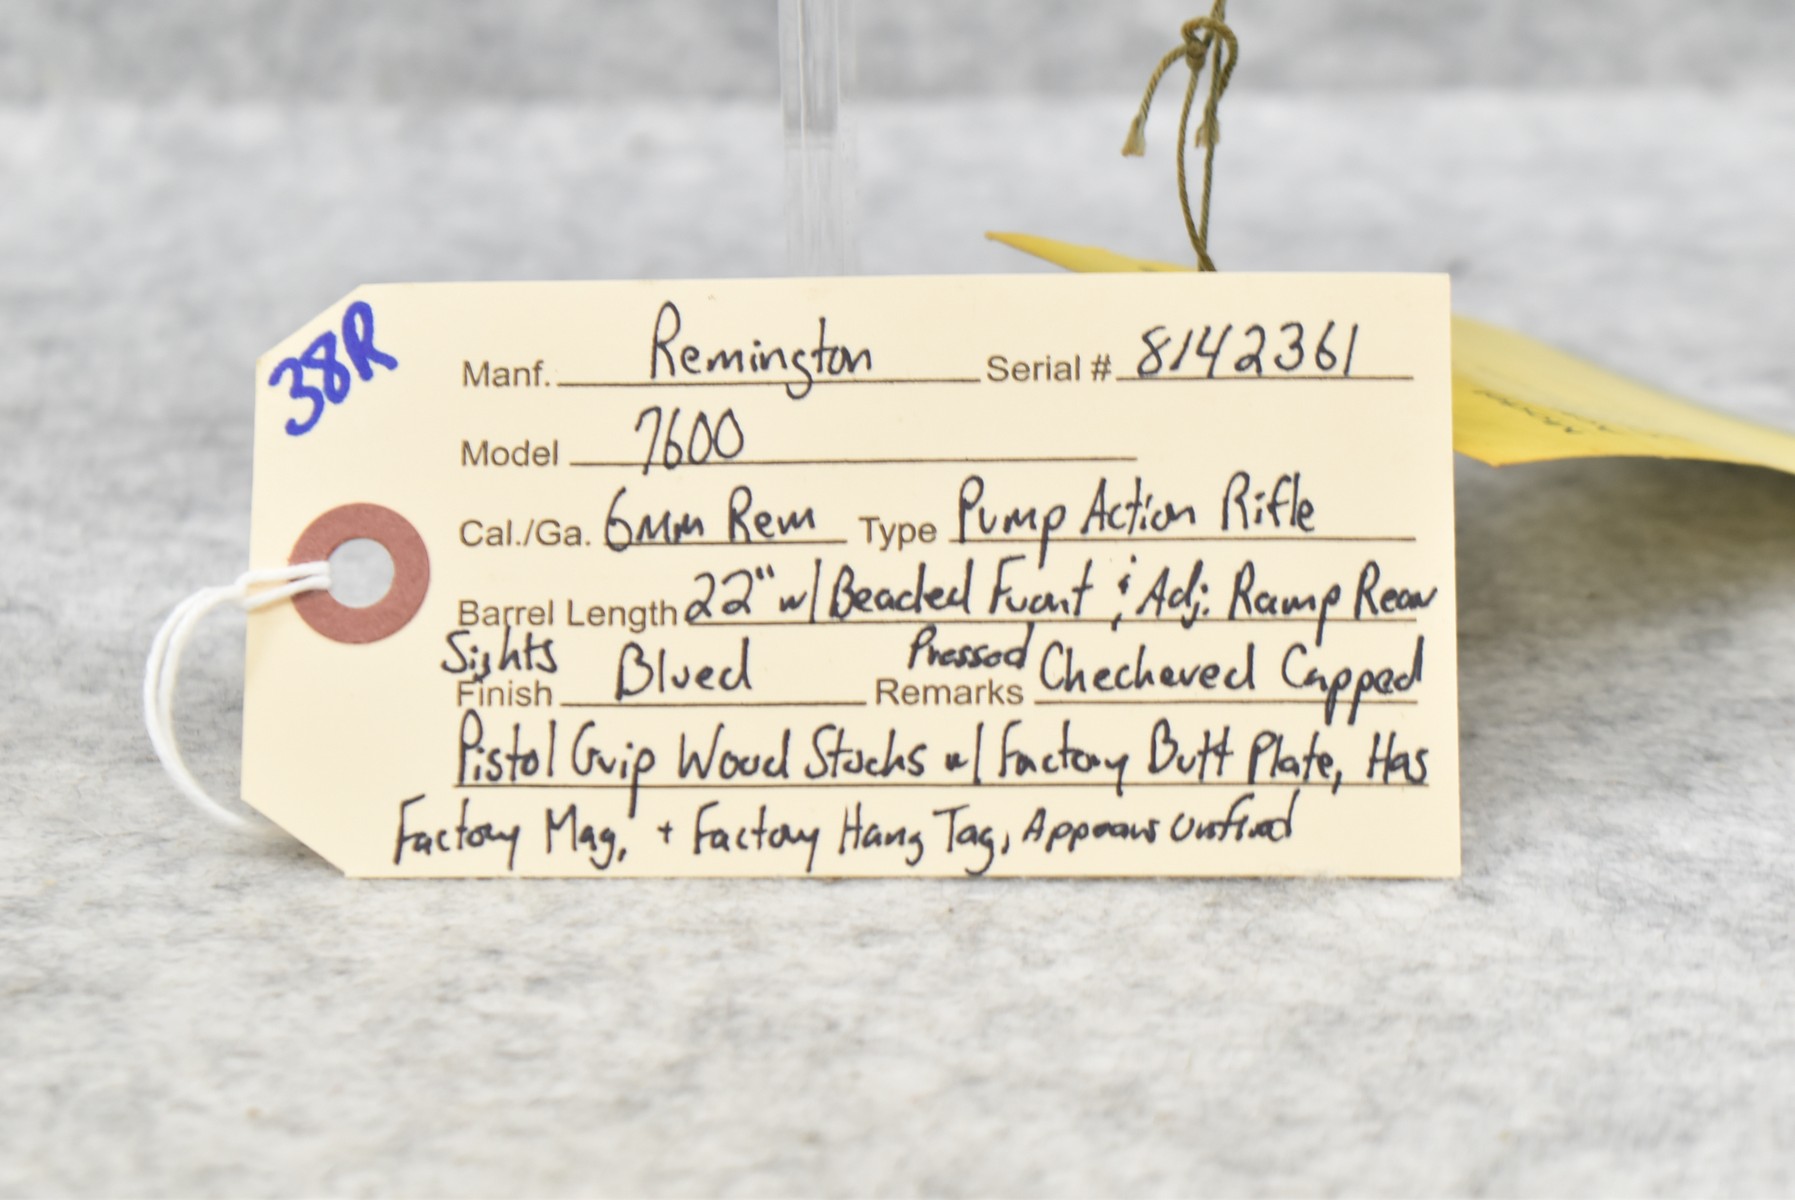 38R
Manf. Remington Serial # 8142361
Model 7600
Cal./Ga. 6mm Rem Type Pump Action Rifle
Barrel Length 22" w/ Beaded Front & Adj. Ramp Rear
Sights
Finish Blued Remarks Pressed Checkered Capped
Pistol Grip Wood Stocks w/ Factory Butt Plate, Has
Factory Mag, + Factory Hang Tag, Appears Unfired